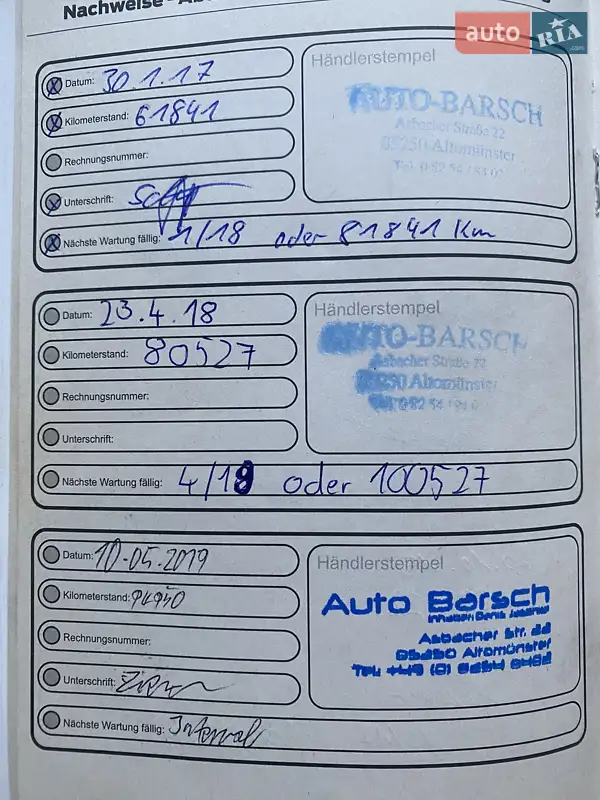 Nachweise
auto RIA.com
Datum: 30.1.17
Kilometerstand: 61841
Rechnungsnummer:
Unterschrift:
Nächste Wartung fällig: 1/18 oder 81841 Km
Händlerstempel
AUTO-BARSCH
Asbacher Straße 22
85250 Altomünster
Datum: 23.4.18
Kilometerstand: 80527
Rechnungsnummer:
Unterschrift:
Nächste Wartung fällig: 4/19 oder 100527
Händlerstempel
AUTO-BARSCH
Asbacher Straße 22
85250 Altomünster
Datum: 10-05.2019
Kilometerstand: 94950
Rechnungsnummer:
Unterschrift:
Nächste Wartung fällig: Interval
Händlerstempel
Auto Barsch
Inhaber: Denis
Asbacher Str. 22
85250 Altomünster
Tel: +49 (0) 8254